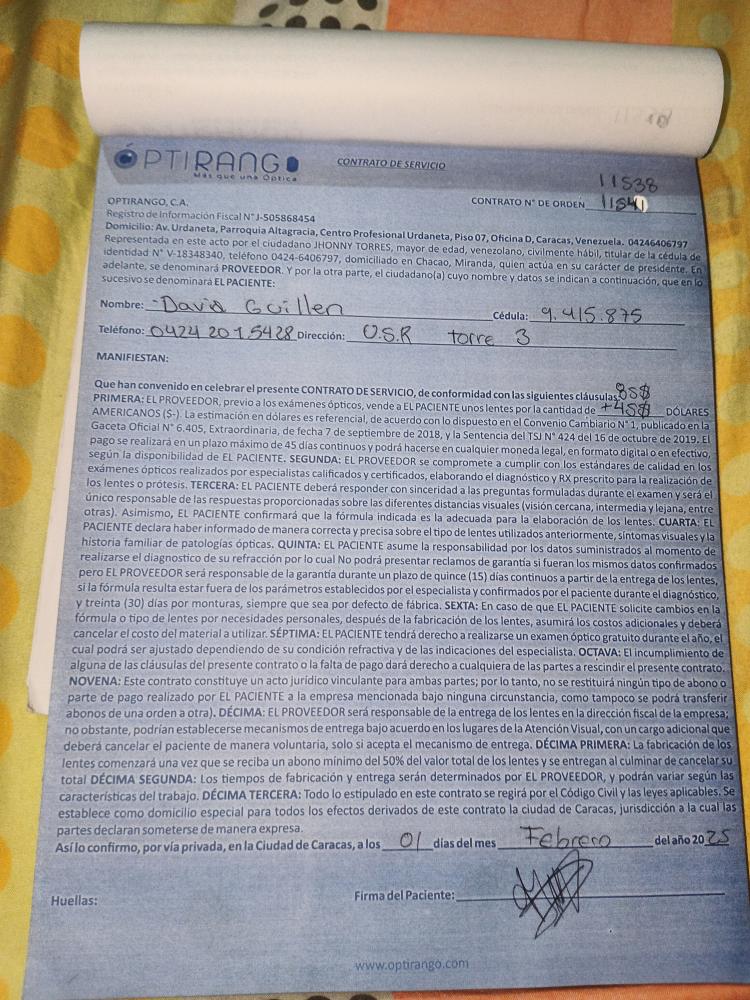 ÓPTIRANGO
Más que una Óptica
CONTRATO DE SERVICIO
11538
CONTRATO N° DE ORDEN 11541
OPTIRANGO, C.A.
Registro de Información Fiscal N° J-505868454
Domicilio: Av. Urdaneta, Parroquia Altagracia, Centro Profesional Urdaneta, Piso 07, Oficina D, Caracas, Venezuela. 04246406797
Representada en este acto por el ciudadano JHONNY TORRES, mayor de edad, venezolano, civilmente hábil, titular de la cédula de
identidad N° V-18348340, teléfono 0424-6406797, domiciliado en Chacao, Miranda, quien actúa en su carácter de presidente. En
adelante, se denominará PROVEEDOR. Y por la otra parte, el ciudadano(a) cuyo nombre y datos se indican a continuación, que en lo
sucesivo se denominará EL PACIENTE:
Nombre: David Guillen Cédula: 9.415.875
Teléfono: 0424 201 5428 Dirección: U.S.R torre 3
MANIFIESTAN:
Que han convenido en celebrar el presente CONTRATO DE SERVICIO, de conformidad con las siguientes cláusulas: 85$
PRIMERA: EL PROVEEDOR, previo a los exámenes ópticos, vende a EL PACIENTE unos lentes por la cantidad de +45$ DÓLARES
AMERICANOS ($-). La estimación en dólares es referencial, de acuerdo con lo dispuesto en el Convenio Cambiario N° 1, publicado en la
Gaceta Oficial N° 6.405, Extraordinaria, de fecha 7 de septiembre de 2018, y la Sentencia del TSJ N° 424 del 16 de octubre de 2019. El
pago se realizará en un plazo máximo de 45 días continuos y podrá hacerse en cualquier moneda legal, en formato digital o en efectivo,
según la disponibilidad de EL PACIENTE. SEGUNDA: EL PROVEEDOR se compromete a cumplir con los estándares de calidad en los
exámenes ópticos realizados por especialistas calificados y certificados, elaborando el diagnóstico y RX prescrito para la realización de
los lentes o prótesis. TERCERA: EL PACIENTE deberá responder con sinceridad a las preguntas formuladas durante el examen y será el
único responsable de las respuestas proporcionadas sobre las diferentes distancias visuales (visión cercana, intermedia y lejana, entre
otras). Asimismo, EL PACIENTE confirmará que la fórmula indicada es la adecuada para la elaboración de los lentes. CUARTA: EL
PACIENTE declara haber informado de manera correcta y precisa sobre el tipo de lentes utilizados anteriormente, síntomas visuales y la
historia familiar de patologías ópticas. QUINTA: EL PACIENTE asume la responsabilidad por los datos suministrados al momento de
realizarse el diagnostico de su refracción por lo cual No podrá presentar reclamos de garantía si fueran los mismos datos confirmados
pero EL PROVEEDOR será responsable de la garantía durante un plazo de quince (15) días continuos a partir de la entrega de los lentes,
si la fórmula resulta estar fuera de los parámetros establecidos por el especialista y confirmados por el paciente durante el diagnóstico,
y treinta (30) días por monturas, siempre que sea por defecto de fábrica. SEXTA: En caso de que EL PACIENTE solicite cambios en la
fórmula o tipo de lentes por necesidades personales, después de la fabricación de los lentes, asumirá los costos adicionales y deberá
cancelar el costo del material a utilizar. SÉPTIMA: EL PACIENTE tendrá derecho a realizarse un examen óptico gratuito durante el año, el
cual podrá ser ajustado dependiendo de su condición refractiva y de las indicaciones del especialista. OCTAVA: El incumplimiento de
alguna de las cláusulas del presente contrato o la falta de pago dará derecho a cualquiera de las partes a rescindir el presente contrato.
NOVENA: Este contrato constituye un acto jurídico vinculante para ambas partes; por lo tanto, no se restituirá ningún tipo de abono o
parte de pago realizado por EL PACIENTE a la empresa mencionada bajo ninguna circunstancia, como tampoco se podrá transferir
abonos de una orden a otra). DÉCIMA: EL PROVEEDOR será responsable de la entrega de los lentes en la dirección fiscal de la empresa;
no obstante, podrían establecerse mecanismos de entrega bajo acuerdo en los lugares de la Atención Visual, con un cargo adicional que
deberá cancelar el paciente de manera voluntaria, solo si acepta el mecanismo de entrega. DÉCIMA PRIMERA: La fabricación de los
lentes comenzará una vez que se reciba un abono mínimo del 50% del valor total de los lentes y se entregan al culminar de cancelar su
total DÉCIMA SEGUNDA: Los tiempos de fabricación y entrega serán determinados por EL PROVEEDOR, y podrán variar según las
características del trabajo. DÉCIMA TERCERA: Todo lo estipulado en este contrato se regirá por el Código Civil y las leyes aplicables. Se
establece como domicilio especial para todos los efectos derivados de este contrato la ciudad de Caracas, jurisdicción a la cual las
partes declaran someterse de manera expresa.
Así lo confirmo, por vía privada, en la Ciudad de Caracas, a los 01 días del mes Febrero del año 2025
Huellas:
Firma del Paciente:
www.optirango.com